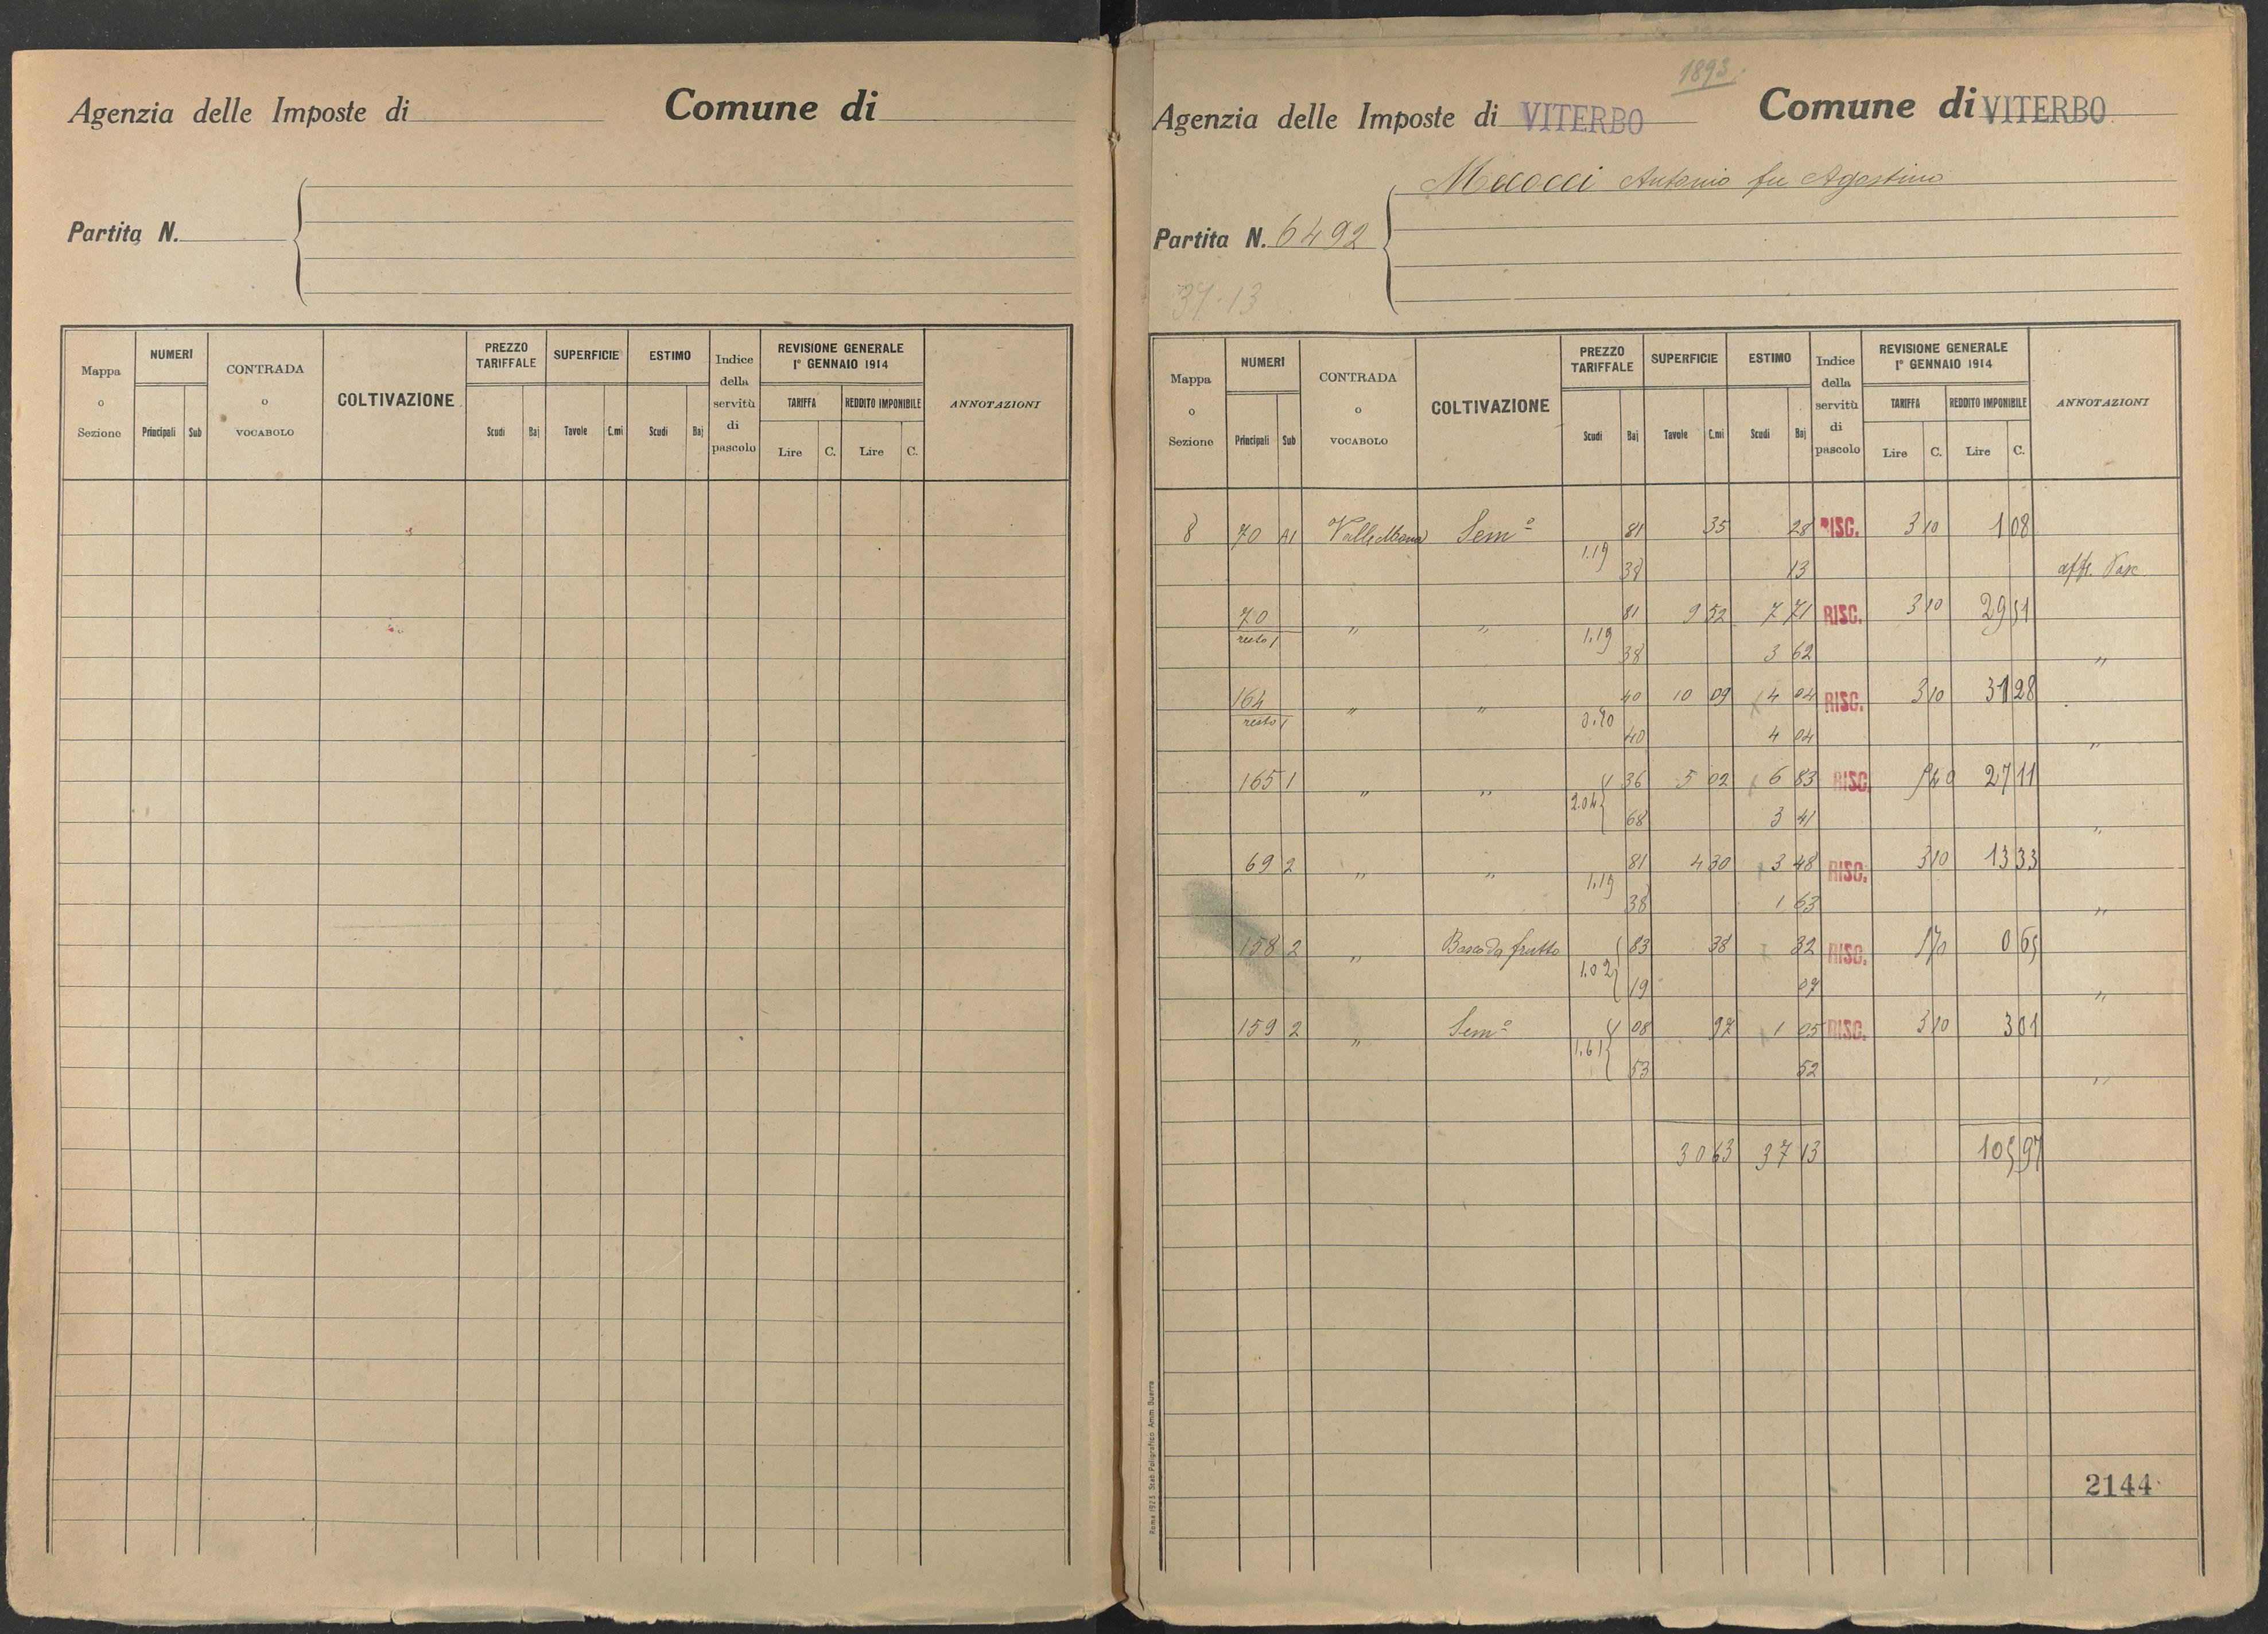 Agenzia delle Imposte di Comune di
Partita N.
Mappa o Sezione NUMERI Principali Sub CONTRADA o VOCABOLO COLTIVAZIONE PREZZO TARIFFALE Scudi Baj SUPERFICIE Tavole C.mi ESTIMO Scudi Baj Indice della servitù di pascolo REVISIONE GENERALE 1° GENNAIO 1914 TARIFFA Lire C. REDDITO IMPONIBILE Lire C. ANNOTAZIONI
1893.
Agenzia delle Imposte di VITERBO Comune di VITERBO
Mecocci Antonio fu Agostino
Partita N. 6492
37.13
Mappa o Sezione NUMERI Principali Sub CONTRADA o VOCABOLO COLTIVAZIONE PREZZO TARIFFALE Scudi Baj SUPERFICIE Tavole C.mi ESTIMO Scudi Baj Indice della servitù di pascolo REVISIONE GENERALE 1° GENNAIO 1914 TARIFFA Lire C. REDDITO IMPONIBILE Lire C. ANNOTAZIONI
8 70 A1 Sem° 81 35 28 RISC. 3 10 1 08
1.19 38 13 aff. Pasc
70 resto 1 " " 81 9 52 7 71 RISC. 3 10 29 51
1.19 38 3 62 "
164 resto 1 " " 40 10 09 4 04 RISC. 3 10 31 28
0.80 40 4 04 "
165 1 " " 1 36 5 02 6 83 RISC. 5 40 27 11
2.04 68 3 41 "
69 2 " " 81 4 30 3 48 RISC. 3 10 13 33
1.19 38 1 63 "
158 2 " Bosco da frutto 83 38 32 RISC. 1 70 0 65
1.02 19 07 "
159 2 " Sem° 1 08 97 1 05 RISC. 3 10 3 01
1.61 53 52 "
30 63 37 13 105 97
2144
Roma 1923. Stab. Poligrafico Amm. Guerra